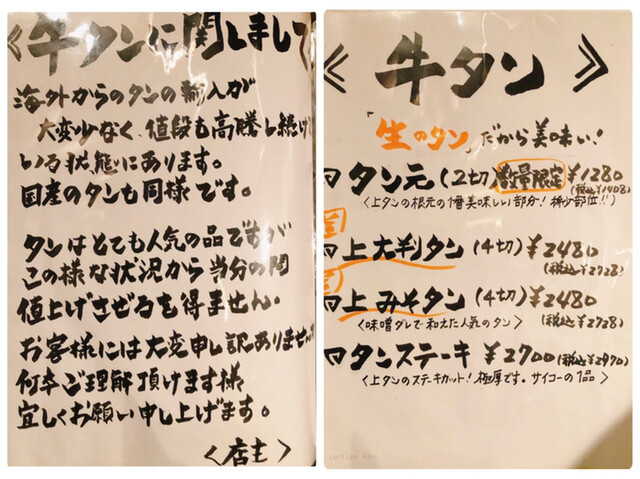 〈牛タンに関しまして
海外からのタンの輸入が
大変少なく、値段も高騰し続けて
いる状態にあります。
国産のタンも同様です。
タンはとても人気の品ですが
この様な状況から当分の間
値上げさせざるを得ません。
お客様には大変申し訳ありません
何卒ご理解頂けます様
宜しくお願い申し上げます。
〈店主〉
《牛タン》
「生のタン」だから美味い!
タン元(2切)数量限定¥1280
(税込¥1408)
〈上タンの根元の1番美味しい部分!稀少部位!!〉
上大判タン(4切)¥2480
(税込¥2728)
上みそタン(4切)¥2480
(税込¥2728)
〈味噌ダレで和えた人気のタン〉
タンステーキ ¥2700(税込¥2970)
〈上タンのステーキカット!極厚です。サイコーの1品〉